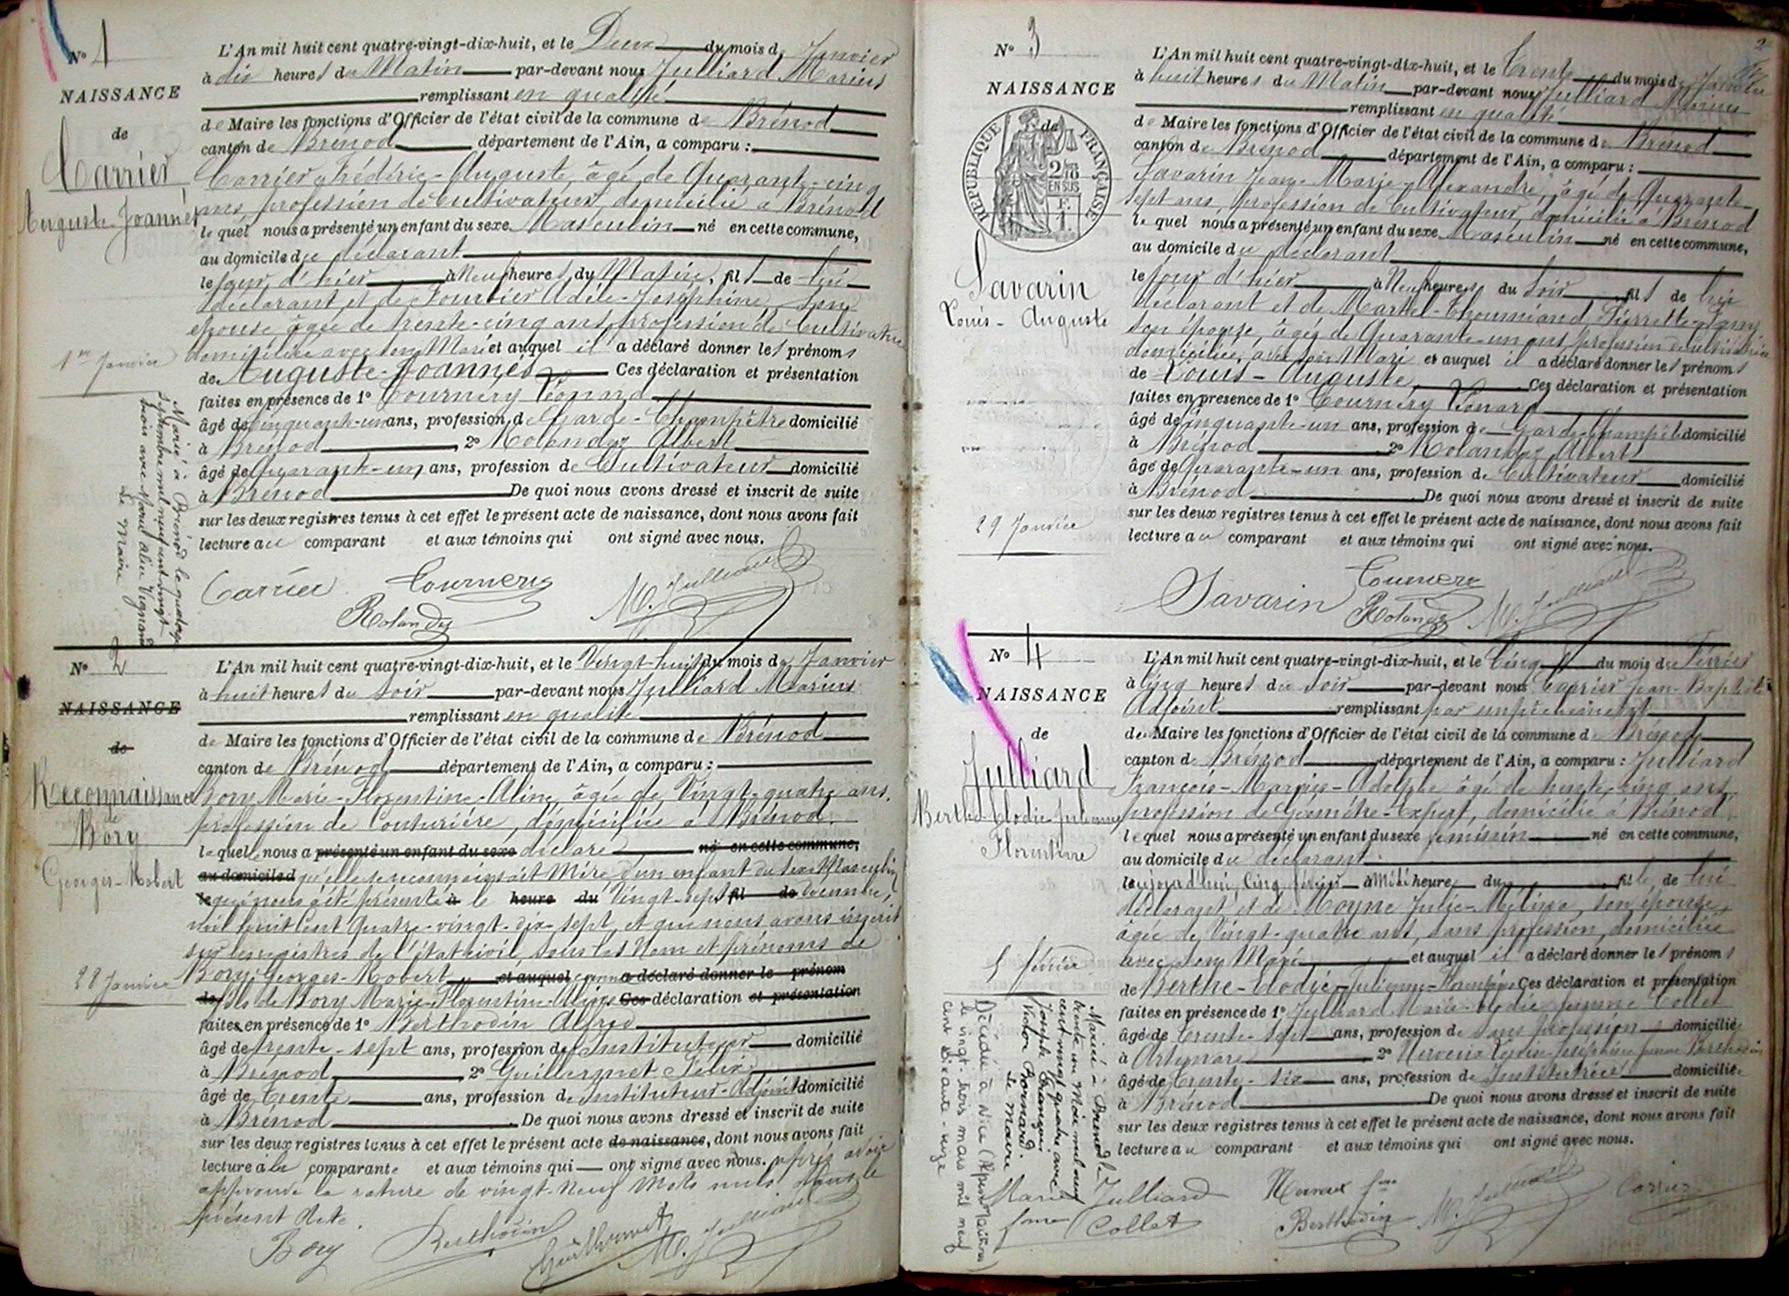 N° 1
NAISSANCE
de
Carrier
Auguste Joannès
1er Janvier
Marié à Brénod le quatorze
septembre mil neuf cent vingt
trois avec Marie Aline Vignand
Le Maire
L'An mil huit cent quatre-vingt-dix-huit, et le Deux du mois de Janvier
à dix heures du Matin par-devant nous Julliard Marius
remplissant en qualité
de Maire les fonctions d'Officier de l'état civil de la commune de Brénod
canton de Brénod département de l'Ain, a comparu :
Carrier Frédéric-Auguste, âgé de Quarante-cinq
ans, profession de Cultivateur, domicilié à Brénod
lequel nous a présenté un enfant du sexe Masculin né en cette commune,
au domicile du déclarant
le jour d'hier à Neuf heures du Matin, fils de lui
déclarant et de Fourrier Adèle-Joséphine son
épouse âgée de trente-cinq ans, profession de Cultivatrice
domiciliée avec son Mari et auquel il a déclaré donner les prénoms
de Auguste-Joannès Ces déclaration et présentation
faites en présence de 1° Tournery Léonard
âgé de Cinquante-un ans, profession de Garde-Champêtre domicilié
à Brénod 2° Rolandez Albert
âgé de Quarante-un ans, profession de Cultivateur domicilié
à Brénod De quoi nous avons dressé et inscrit de suite
sur les deux registres tenus à cet effet le présent acte de naissance, dont nous avons fait
lecture au comparant et aux témoins qui ont signé avec nous.
Carrier Tournery M. Julliard
Rolandez
N° 2
NAISSANCE
de
Reconnaissance
de
Bory
Georges-Robert
28 Janvier
L'An mil huit cent quatre-vingt-dix-huit, et le Vingt-huit du mois de Janvier
à huit heures du Soir par-devant nous Julliard Marius
remplissant en qualité
de Maire les fonctions d'Officier de l'état civil de la commune de Brénod
canton de Brénod département de l'Ain, a comparu :
Bory Marie-Florentine-Aline, âgée de Vingt-quatre ans,
profession de Couturière, domiciliée à Brénod.
laquelle nous a présenté un enfant du sexe déclaré né en cette commune,
au domicile d qu'elle se reconnaissait Mère d'un enfant du sexe Masculin
le qui nous a été présenté à le heure du Vingt-sept fil de Décembre,
mil huit cent Quatre-vingt-dix-sept, et que nous avons inscrit
sur les registres de l'état civil, sous les Nom et prénoms de
Bory Georges-Robert et auquel comme a déclaré donner le prénom
de fils de Bory Marie-Florentine-Aline Ces déclaration et présentation
faites en présence de 1° Berthodin Alfred
âgé de trente-sept ans, profession de Instituteur domicilié
à Brénod 2° Guillermet Félix
âgé de Trente ans, profession de Instituteur-Adjoint domicilié
à Brénod De quoi nous avons dressé et inscrit de suite
sur les deux registres tenus à cet effet le présent acte de naissance, dont nous avons fait
lecture à la comparante et aux témoins qui ont signé avec nous. après avoir
approuvé la rature de vingt-neuf mots nuls dans le
présent Acte.
Bory Berthodin Guillermet M. Julliard
2
N° 3
NAISSANCE
de
RÉPUBLIQUE FRANÇAISE
2/10
EN SUS
1 F.
Savarin
Louis-Auguste
29 Janvier
L'An mil huit cent quatre-vingt-dix-huit, et le Trente du mois de Janvier
à huit heures du Matin par-devant nous Julliard Marius
remplissant en qualité
de Maire les fonctions d'Officier de l'état civil de la commune de Brénod
canton de Brénod département de l'Ain, a comparu :
Savarin Jean-Marie-Alexandre, âgé de Quarante-
sept ans, profession de Cultivateur, domicilié à Brénod
lequel nous a présenté un enfant du sexe Masculin né en cette commune,
au domicile du déclarant
le jour d'hier à Neuf heures du Soir fils de lui
déclarant et de Martel-Thoumiand Pierrette-Fany
son épouse, âgée de Quarante-un ans profession de Cultivatrice
domiciliée, avec son Mari et auquel il a déclaré donner les prénoms
de Louis-Auguste Ces déclaration et présentation
faites en présence de 1° Tournery Léonard
âgé de Cinquante-un ans, profession de Garde-Champêtre domicilié
à Brénod 2° Rolandez Albert
âgé de Quarante-un ans, profession de Cultivateur domicilié
à Brénod De quoi nous avons dressé et inscrit de suite
sur les deux registres tenus à cet effet le présent acte de naissance, dont nous avons fait
lecture au comparant et aux témoins qui ont signé avec nous.
Savarin Tournery
Rolandez M. Julliard
N° 4
NAISSANCE
de
Julliard
Berthe Elodie Julienne
Florentine
5 février
Mariée à Brénod le
trente un Mai mil neuf
cent vingt quatre avec
Joseph François
Victor Bornand
Le Maire
Décédée à Nice (Alpes Maritimes)
le vingt-trois mars mil neuf
cent soixante-seize
L'An mil huit cent quatre-vingt-dix-huit, et le Cinq du mois de Février
à Cinq heures du Soir par-devant nous Carrier Jean-Baptiste
Adjoint remplissant par empêchement
de Maire les fonctions d'Officier de l'état civil de la commune de Brénod
canton de Brénod département de l'Ain, a comparu : Julliard
François-Marius-Adolphe âgé de trente-cinq ans
profession de Géomètre-Expert, domicilié à Brénod
lequel nous a présenté un enfant du sexe féminin né en cette commune,
au domicile du déclarant
le aujourd'hui Cinq février à Midi heure du fille de lui
déclarant et de Moyne Julie-Mélinie, son épouse
âgée de Vingt-quatre ans, sans profession, domiciliée
avec son Mari et auquel il a déclaré donner les prénoms
de Berthe-Elodie-Julienne-Florentine Ces déclaration et présentation
faites en présence de 1° Julliard Marie-Elodie femme Collet
âgée de Trente-sept ans, profession de sans profession domicilié
à Artemare 2° femme Berthodin
âgée de Trente-six ans, profession de Institutrice domiciliée
à Brénod De quoi nous avons dressé et inscrit de suite
sur les deux registres tenus à cet effet le présent acte de naissance, dont nous avons fait
lecture au comparant et aux témoins qui ont signé avec nous.
Marie Julliard
fme Collet
fme
Berthodin M. Julliard Carrier